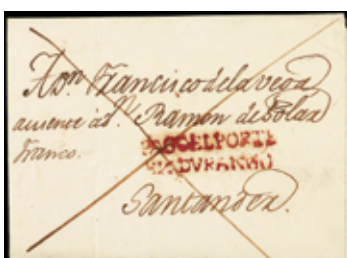 A Dn. Francisco de la Vega
ausente á Dn. Ramon de Solar
Franco.
PAGO EL PORTE
DURANGO
Santander.